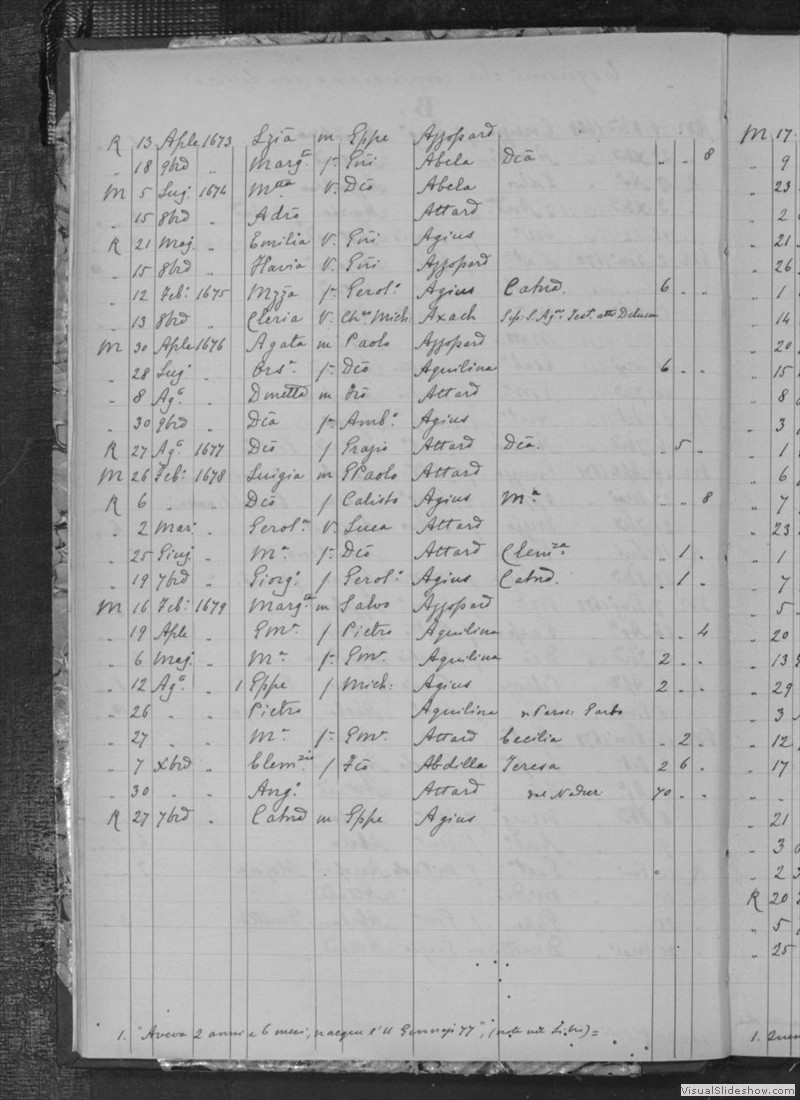 R 13 Aple 1673 Lzia m Eppe Azzopard
„ 18 9brd „ Marga f. Gñi Abela Dca „ „ 8
M 5 Lug. 1674 Mtta V. Dco Abela
„ 15 8brd „ Adrõ Attard
R 21 Maj. „ Emilia V. Gñi Agius
„ 15 8brd „ Flavia V. Gñi Azzopard
„ 12 Feb: 1675 Mzza f. Gerol. Agius Catnd. 6 „ „
„ 13 8brd „ Cleria V. Mich. Axach
M 30 Aple 1676 Agata m Paolo Azzopard
„ 28 Lug. „ Orsa f. Dco Aquilina 6 „ „
„ 8 Aga „ Dmetta m Fco Attard
„ 30 9brd „ Dca f. Ambo. Agius
R 27 Aga 1677 Dco f Grazio Attard Dca. „ 5 „
M 26 Feb: 1678 Luigia m GPaolo Attard
R 6 „ „ Dco f Calisto Agius Ma „ „ 8
„ 2 Mar. „ Gerola V. Luca Attard
„ 25 Giug. „ Ma f. Dco Attard Clemza. „ 1 „
„ 19 7brd „ Giorgo f Gerol. Agius Catnd. „ 1 „
M 16 Feb: 1679 Marga m Salvo Azzopard
„ 19 Aple „ Gma f Pietro Aquilina „ „ 4
„ 6 Maj. „ Ma f. Gma. Aquilina 2 „ „
„ 12 Aga „ 1 Eppe f Mich: Agius 2 „ „
„ 26 „ „ Pietro Aquilina Garbo
„ 27 „ „ Ma f. Gma. Attard Cecilia „ 2 „
„ 7 Xbrd „ Clem f Fco Abdilla Teresa 2 6 „
„ 30 „ „ Ango Attard Nadur 70 „ „
R 27 7brd „ Catnd m Eppe Agius
1. "Aveva 2 anni e 6 mesi, nacque l'11 Gennajo 77", (nota nel Libro) =
M 17
„ 9
„ 23
„ 2
„ 21
„ 26
„ 1
„ 14
„ 20
„ 15
„ 8
„ 3
„ 1
„ 6
„ 7
„ 23
„ 1
„ 7
„ 5
„ 20
„ 13
„ 29
„ 3
„ 12
„ 17
„ 21
„ 3
„ 2
R 20
„ 5
„ 25
1.
VisualSlideshow.com